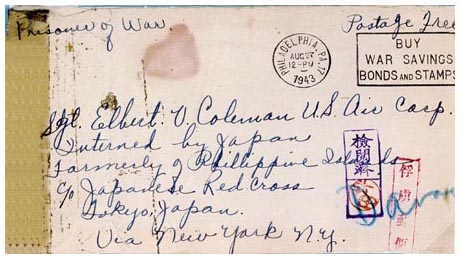 Prisoner of War
Postage Free
PHILADELPHIA, PA. 17
AUG 27
12-PM
1943
BUY
WAR SAVINGS
BONDS AND STAMPS
Sgt. Elbert V. Coleman U.S. Air Corp.
Interned by Japan
Formerly of Philippine Islands
c/o Japanese Red Cross
Tokyo, Japan.
Via New York N.Y.
檢閲濟
俘虜郵便